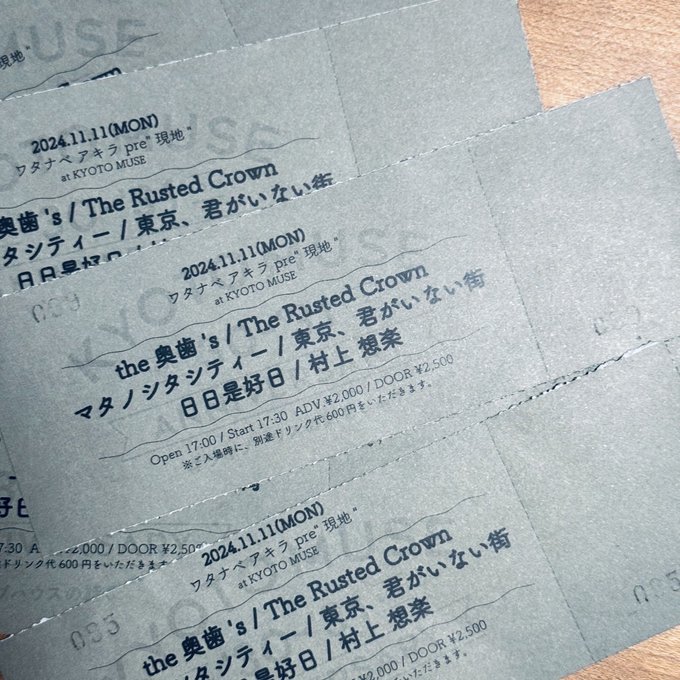 MUSE
現地"
2024.11.11(MON)
ワタナベ アキラ pre" 現地"
at KYOTO MUSE
奥歯's / The Rusted Crown
タシティー / 東京、君がいない街
日日是好日
2024.11.11(MON)
ワタナベ アキラ pre" 現地"
at KYOTO MUSE
the 奥歯's / The Rusted Crown
マタノシタシティー / 東京、君がいない街
日日是好日 / 村上 想楽
Open 17:00 / Start 17:30 ADV.¥2,000 / DOOR ¥2,500
※ご入場時に、別途ドリンク代600円をいただきます。
7:30 ADV.¥2,000 / DOOR ¥2,50
ドリンク代600円をいただきます。
2024.11.11(MON)
ワタナベ アキラ pre" 現地"
at KYOTO MUSE
085
the 奥歯's / The Rusted Crown
タシティー / 東京、君がいない街
日是好日 / 村上 想楽
¥2,000 / DOOR ¥2,500
をいただきます。
085